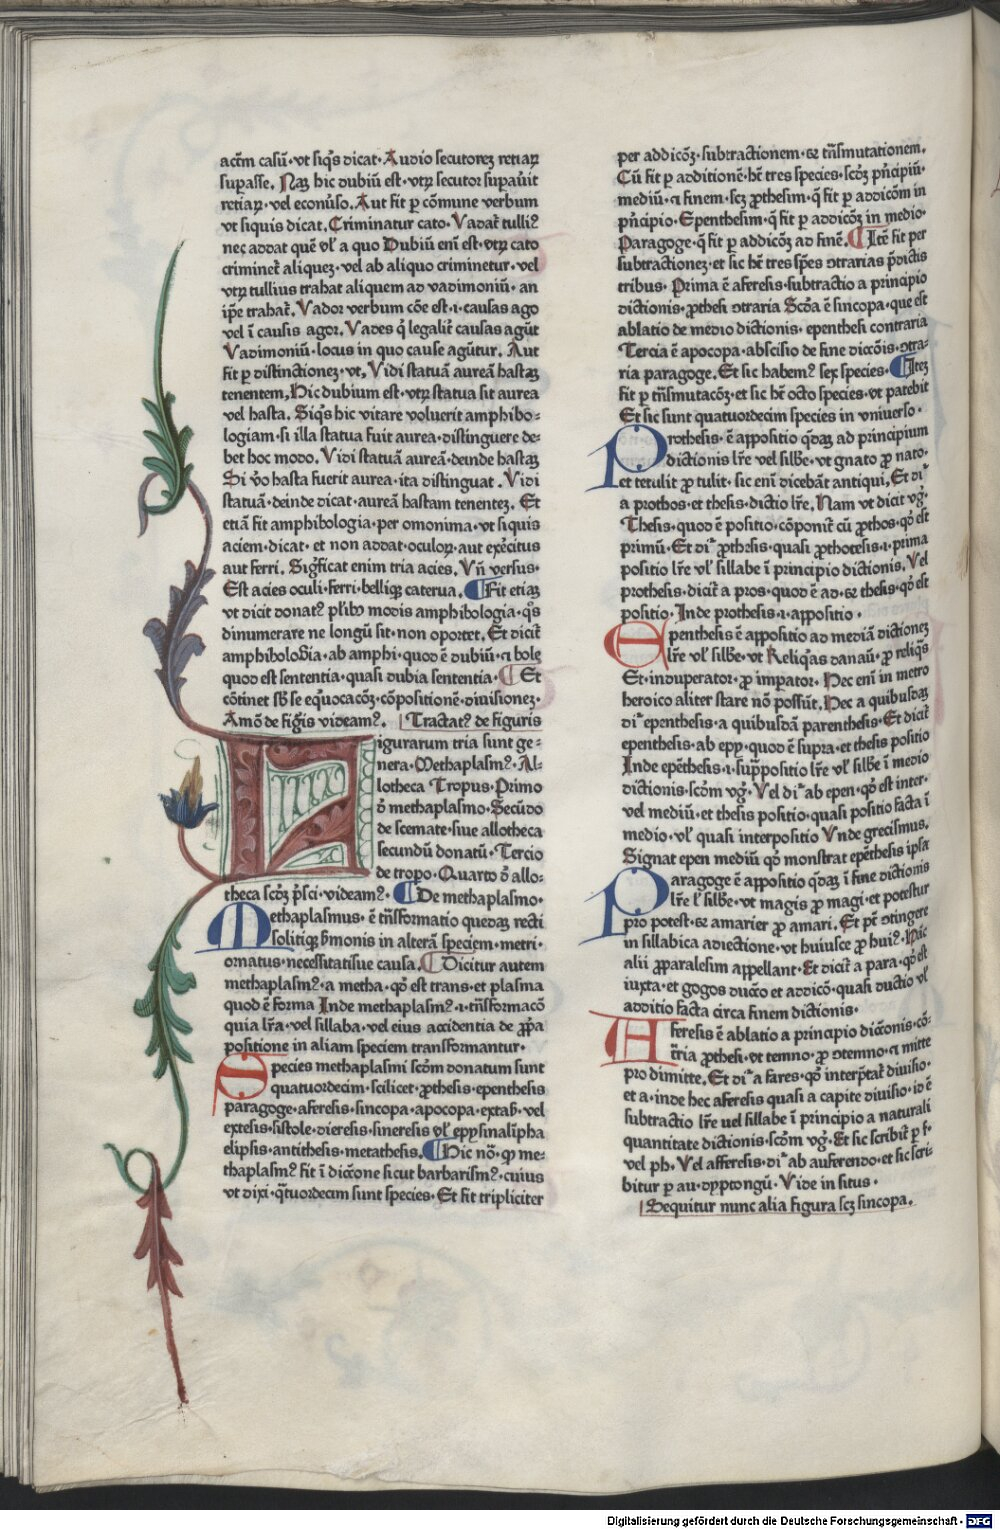 actm̄ casū·vt siq̄s dicat·Audio secutorez retiaꝝ
supasse. Naꝫ hic dubiū est·vtꝝ secutor supau̇it
retiaꝝ·vel econuṡo. Aut fit ꝑ cōmune verbum
vt siquis dicat. Criminatur cato·Vadat̄ tulliꝰ
nec addat quē vl̓ a quo Dubiū eni̅ est·vtꝝ cato
criminet̄ aliquez·vel ab aliquo criminetur·vel
vtꝝ tullius trahat aliquem ad vadimoniū·an
ip̄e trahat̄. Vador verbum cōe est·ı·causas ago
vel ī causis agor. Vades q̇ legalit̄ causas agūt
Vadimoniū·locus in quo cause agūtur. Aut
fit ꝑ distinctionez·vt, Vidi statuā aureā hastaꝫ
tenentem. Hic dubium est·vtꝝ statua sit aurea
vel hasta. Siq̄s hic vitare voluerit amphibo-
logiam·si illa statua fuit aurea·distinguere de-
bet hoc modo. Vidi statuā aureā·deinde hastaꝫ
Si v̇o hasta fuerit aurea·ita distinguat. Vidi
statuā·deinde dicat·aureā hastam tenentez. Et
etiā fit amphibologia·per omonima·vt siquis
aciem·dicat·et non addat·oculoꝝ·aut exėcitus
aut ferri. Sigficat enim tria acies. Vn̄ versus·
Est acies oculi·ferri·belliqꝫ caterua. ¶Fit etiaꝫ
vt dicit donatꝰ pl̓ibꝰ modis amphibologia·q̄s
dinumerare ne longū sit·non oportet. Et dicit̄
amphibologia·ab amphi·quod ē dubiū·ꞇ bole
quod est sententia·quasi dubia sententia·¶Et
cōtinet sb̓ se eq̇uocacōꝫ·cōpositionē·diuisionez·
Amō de figu̇is videamꝰ. Tractatꝰ de figuris
Figurarum tria sunt ge-
nera·Methaplasmꝰ·Al-
lotheca Tropus·Primo
d̓ methaplasmo·Secūdo
de scemate·siue allotheca
secundū donatū·Tercio
de tropo·Quarto d̓ allo-
theca scd̓ꝫ p̄sci·videamꝰ·¶De methaplasmo·
Methaplasmus·ē tn̄sformatio quedaꝫ recti
solitiqꝫ s̓monis in alterā speciem·metri·
ornatus·necessitatisue causa.¶Dicitur autem
methaplasmꝰ·a metha·qd̓ est trans·et plasma
quod ē forma Inde methaplasmꝰ·ı·tn̄sformacō
quia lr̄a·vel sillaba·vel eius accidentia de ꝓp̄a
positione in aliam speciem transformantur·
Species methaplasmi scd̓m donatum sunt
quatuordecim·scilicet·ꝓthesis·epenthesis
paragoge·aferesis·sincopa·apocopa·extaß·vel
extesis·sistole·dieresis·sineresis vl̓ epysinalipha
elipsis·antithesis·metathesis.¶Hic nō·ꝙ me-
thaplasmꝰ fit ī dicc̄one sicut barbarismꝰ·cuius
vt dixi·q̄tuordecim sunt species·Et fit tripliciter
per addicōꝫ·subtractionem·⁊ tn̄smutationem.
Cū fit ꝑ additionē·hꝫ tres species·scd̓ꝫ pn̓cipiū·
mediū·ꞇ finem·scꝫ ꝓthesim·q̄ fit ꝑ addicōm in
pn̓cipio·Epenthesim·q̄ fit ꝑ addicōꝫ in medio·
Paragoge·q̄ fit ꝑ addicōꝫ ad finē.¶Itē fit per
subtractionez·et sic hꝫ tres sp̄es ↄtrarias p̄dictis
tribus·Prima ē aferesis·subtractio a principio
dictionis·ꝓthesi ↄtraria Scd̓a ē sincopa·que est
ablatio de medio dictionis·epenthesi contraria
Tercia ē apocopa·abscisio de fine diccōis·ↄtra-
ria paragoge. Et sic habemꝰ sex species·¶Itez
fit ꝑ tn̄smutacōꝫ·et sic hꝫ octo species·vt patebit
Et sic sunt quatuordecim species in vniuerso·
Prothesis·ē appositio q̄daꝫ ad principium
dictionis lr̄e vel sillb̄e·vt gnato ꝓ nato·
et tetulit ꝓ tulit·sic eni̅ dicebāt antiqui, Et dr̄
a prothos·et thesis·dictio lr̄e. Nam vt dicit vg̓·
Thesis·quod ē positio·cōponit̄ cū ꝓthos·qd̓ est
primū·Et dr̄ ꝓthesis·quasi ꝓthothesis·ı·prima
positio lr̄e vl̓ sillabe ī principio dictionis. Vel
prothesis·dicit̄ a pros·quod ē ad·⁊ thesis·qd̓ est
positio·Inde prothesis·ı·appositio·
Epenthesis ē appositio ad mediā dictionez
lr̄e vl̓ sillb̄e·vt Reliq̄as danaū·ꝓ reliq̄s
Et·induperator·ꝓ im̄perator. Nec eni̅ in metro
heroico aliter stare nō possūt. Hec a quibusdaꝫ
dr̄ epenthesis·a quibusdā parenthesis·Et dicit̄
epenthesis·ab epy·quod ē supra·et thesis positio
Inde epēthesis·ı·suꝑpositio lr̄e vl̓ sillb̄e ī medio
dictionis·scd̓m vg̓·Vel dr̄ ab epen·qd̓ est inter·
vel mediū·et thesis positio·quasi positio facta ī
medio·vl̓ quasi interpositio Vnde grecismus.
Signat epen mediū qd̓ monstrat epēthesis ipsa
Paragoge ē appositio q̄daꝫ ī fine dictionis
lr̄e l̓ sillb̄e·vt magis ꝓ magi·et potestur
pro potest·⁊ amarier ꝓ amari. Et pt̄ ↄtingere
in sillabica adiectione·vt huiusce ꝓ huiꝰ·Hāc
alii ꝓparalesim appellant·Et dicit̄ a para·qd̓ est
iuxta·et gogos ducc̄o et addicō·quasi ductio vl̓
additio facta circa finem dictionis·
Aferesis ē ablatio a principio dicc̄onis·cō-
tr̄ria ꝓthesi·vt temno·ꝓ ↄtemno·ꞇ mitte
pro dimitte. Et dr̄ a fares·qd̓ interp̄tat̄ diuisio·
et a·inde hec aferesis quasi a capite diuisio·id ē
subtractio lr̄e uel sillabe ī principio a naturali
quantitate dictionis·scd̓m vg̓·Et sic scribit̄ ꝑ f·
vel ph. Vel afferesis·dr̄ ab auferendo·et sic scri-
bitur ꝑ au·dyptongū·Vide in situs·
Sequitur nunc alia figura scꝫ sincopa.
Digitalisierung gefördert durch die Deutsche Forschungsgemeinschaft - DFG